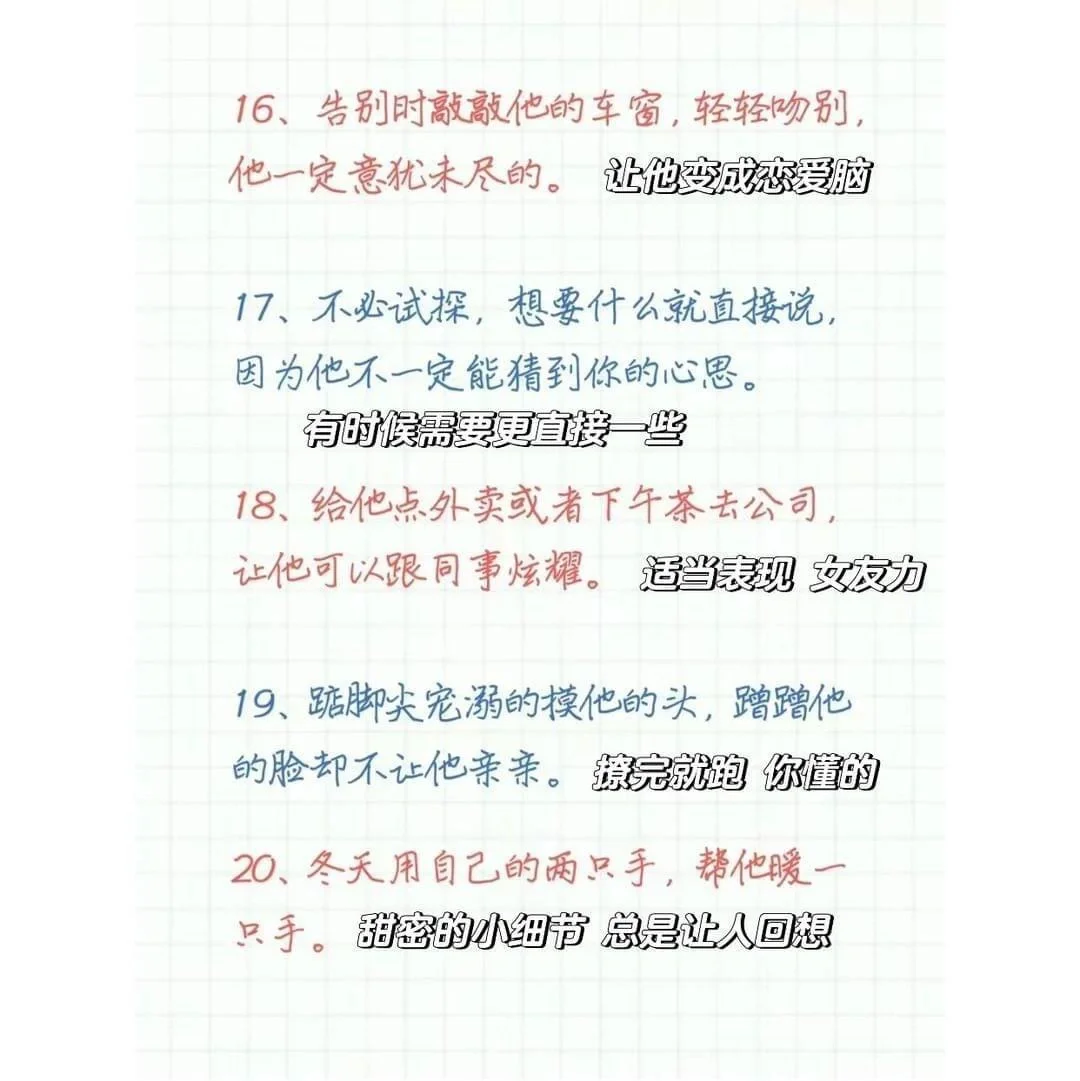 16、告别时敲敲他的车窗，轻轻吻别，
他一定意犹未尽的。 让他变成恋爱脑
17、不必试探，想要什么就直接说，
因为他不一定能猜到你的心思。
有时候需要更直接一些
18、给他点外卖或者下午茶去公司，
让他可以跟同事炫耀。 适当表现 女友力
19、踮脚尖宠溺的摸他的头，蹭蹭他
的脸却不让他亲亲。 撩完就跑 你懂的
20、冬天用自己的两只手，帮他暖一
只手。 甜密的小细节 总是让人回想